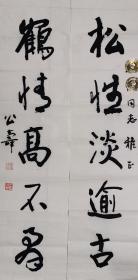 松性淡逾古
鹤情高不群
同志雅正
公寿